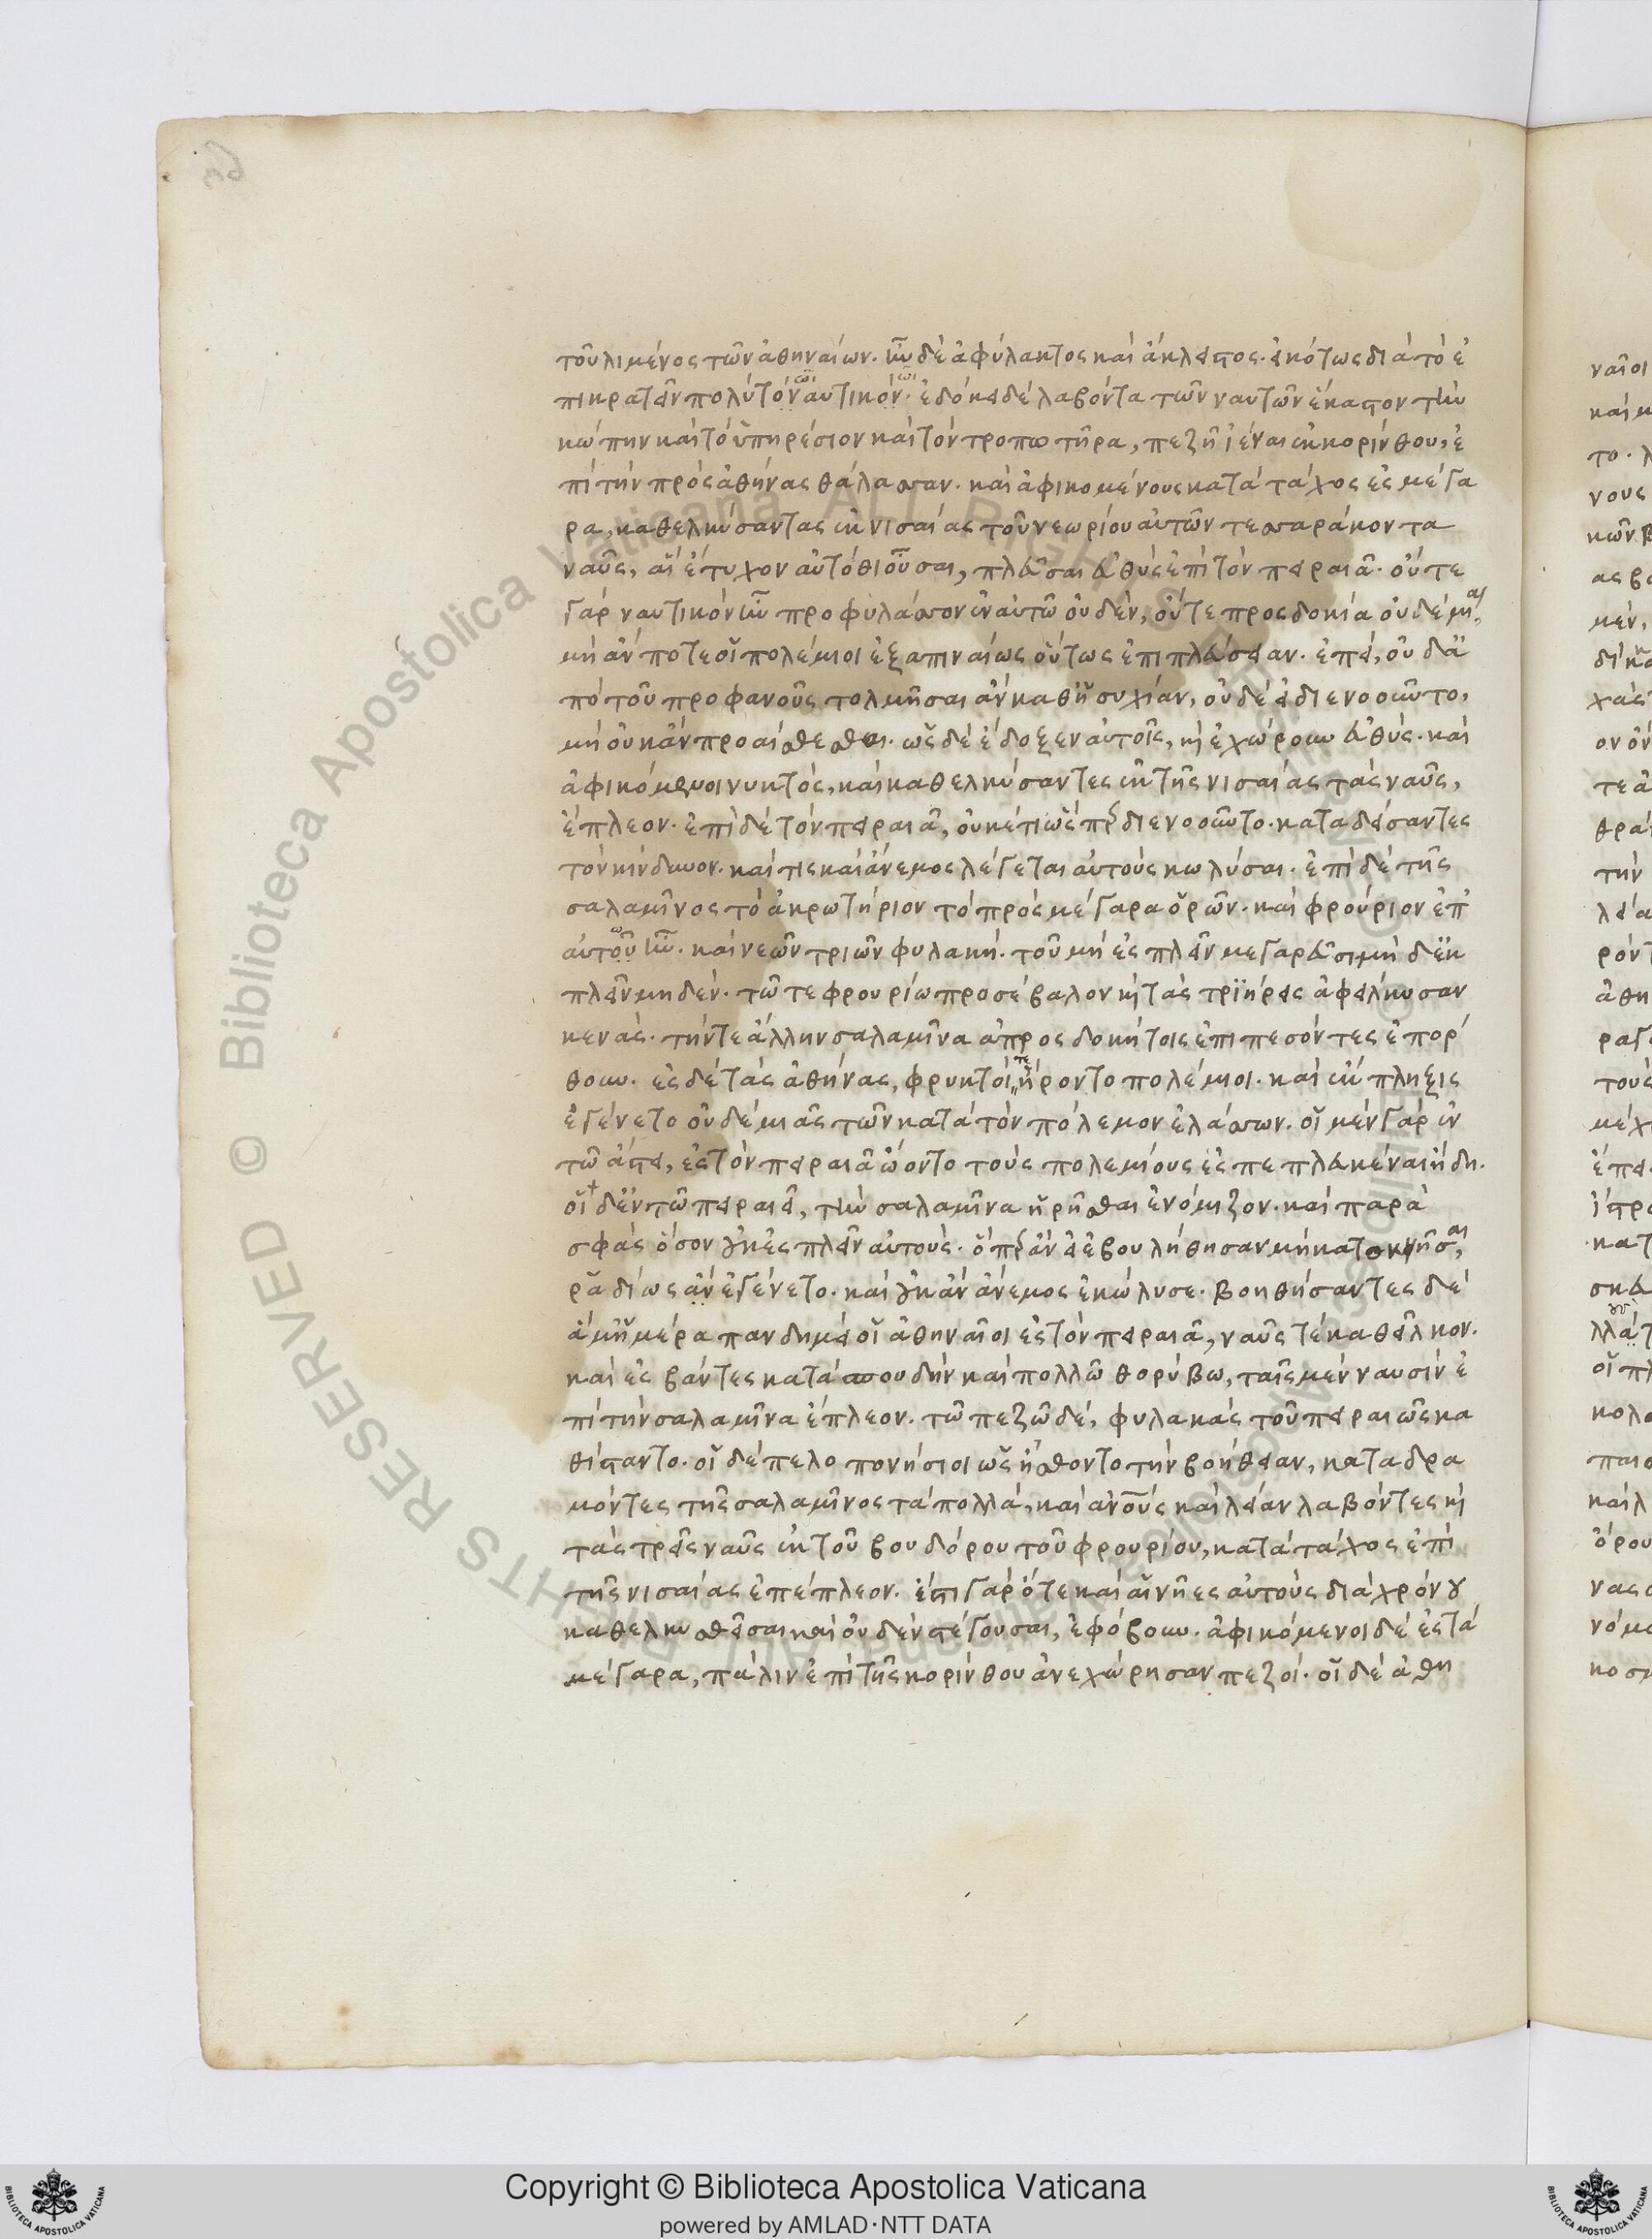 τοῦ λιμένος τῶν ἀθηναίων. ἦν δὲ ἀφύλακτος καὶ ἄκλειστος. εἰκότως διὰ τὸ ἐ
πικρατεῖν πολὺ τὸν αυτικόν. ἐδόκει δὲ λαβόντα τῶν ναυτῶν ἕκαστον τὴν
κώπην καὶ τὸ ὑπηρέσιον καὶ τὸν τροπωτῆρα, πεζῆ ἰέναι ἐκ κορίνθου, ἐ
πὶ τὴν πρὸς ἀθήνας θάλασσαν. καὶ ἀφικομένους κατὰ τάχος ἐς μέγα
ρα, καθελκύσαντας ἐκ νισαίας τοῦ νεωρίου αὐτῶν τεσσαράκοντα
ναῦς, αἳ ἔτυχον αὐτόθι οὖσαι, πλεῦσαι εὐθὺς ἐπὶ τὸν πειραιᾶ. οὔτε
γὰρ ναυτικὸν ἦν προφυλάσσον ἐν αὐτῶ οὐδὲν, οὔτε προσδοκία οὐδεμία
μὴ ἄν ποτε οἱ πολέμιοι ἐξαπιναίως οὕτως ἐπιπλεύσειαν. ἐπεὶ, οὐδ' ἀ
πὸ τοῦ προφανοῦς τολμῆσαι ἂν καθ' ἡσυχίαν, οὐδὲ εἰ διενοοῦντο,
μὴ οὐκ ἂν προαίσθεσθαι. ὡς δὲ ἔδοξεν αὐτοῖς, καὶ ἐχώρουν εὐθύς. καὶ
ἀφικόμενοι νυκτὸς, καὶ καθελκύσαντες ἐκ τῆς νισαίας τὰς ναῦς,
ἔπλεον. ἐπὶ δὲ τὸν πειραιᾶ, οὐκέτι ὥσπερ διενοοῦντο. καταδείσαντες
τὸν κίνδυνον. καί τις καὶ ἄνεμος λέγεται αὐτοὺς κωλύσαι. ἐπὶ δὲ τῆς
σαλαμῖνος τὸ ἀκρωτήριον τὸ πρὸς μέγαρα ὁρῶν. καὶ φρούριον ἐπ'
αὐτοῦ ἦν. καὶ νεῶν τριῶν φυλακὴ. τοῦ μὴ ἐσπλεῖν μεγαρεῦσι μὴ δ' ἐκ
πλεῖν μηδέν. τῶ τε φρουρίω προσέβαλον καὶ τὰς τριήρεις ἀφείλκυσαν
κενάς. τήν τε ἄλλην σαλαμῖνα ἀπροσδοκήτοις ἐπιπεσόντες ἐπόρ
θουν. ἐς δὲ τὰς ἀθήνας, φρυκτοί τε ᾔροντο πολέμιοι. καὶ ἔκπληξις
ἐγένετο οὐδεμιᾶς τῶν κατὰ τὸν πόλεμον ἐλάσσων. οἱ μὲν γὰρ ἐν
τῶ ἄστει, ἐς τὸν πειραιᾶ ὤοντο τοὺς πολεμίους ἐσπεπλευκέναι ἤδη.
οἱ δ' ἐν τῶ πειραιεῖ, τὴν σαλαμῖνα ἡρῆσθαι ἐνόμιζον. καὶ παρὰ
σφᾶς ὅσον οὐκ ἐσπλεῖν αὐτούς. ὅπερ ἂν εἰ ἐβουλήθησαν μὴ κατοκνῆσαι,
ῥαδίως ἂν ἐγένετο. καὶ οὐκ ἂν ἄνεμος ἐκώλυσε. βοηθήσαντες δὲ
ἅμ' ἡμέρα πανδημεὶ οἱ ἀθηναῖοι ἐς τὸν πειραιᾶ, ναῦς τε καθεῖλκον.
καὶ ἐσβάντες κατὰ σπουδὴν καὶ πολλῶ θορύβω, ταῖς μὲν ναυσὶν ἐ
πὶ τὴν σαλαμῖνα ἔπλεον. τῶ πεζῶ δὲ, φυλακὰς τοῦ πειραιῶς κα
θίσταντο. οἱ δὲ πελοπονήσιοι ὡς ᾔσθοντο τὴν βοήθειαν, καταδρα
μόντες τῆς σαλαμῖνος τὰ πολλὰ, καὶ ἀνους καὶ λείαν λαβόντες καὶ
τὰς τρεῖς ναῦς ἐκ τοῦ βουδόρου τοῦ φρουρίου, κατὰ τάχος ἐπὶ
τῆς νισαίας ἐπέπλεον. ἔστι γὰρ ὅτε καὶ αἱ νῆες αὐτοὺς διὰ χρόνου
καθελκυσθεῖσαι καὶ οὐδὲν στέγουσαι, ἐφόβουν. ἀφικόμενοι δὲ ἐς τὰ
μέγαρα, πάλιν ἐπὶ τῆς κορίνθου ἀνεχώρησαν πεζοί. οἱ δὲ ἀθη
Copyright © Biblioteca Apostolica Vaticana
powered by AMLAD·NTT DATA